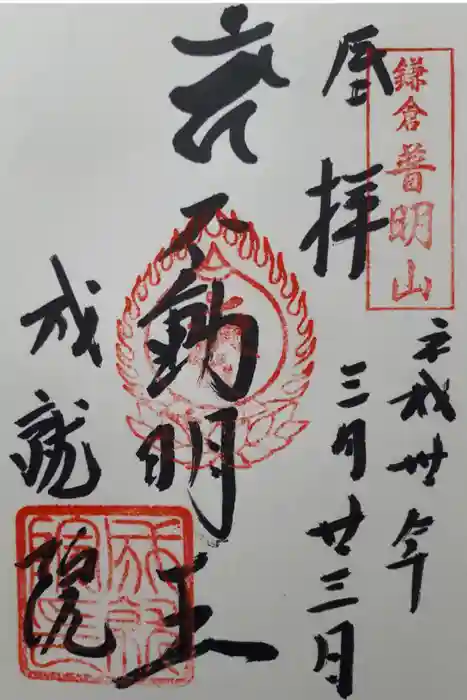 鎌倉普明山
奉拝
平成卅年
三月廿三日
不動明王
成就院